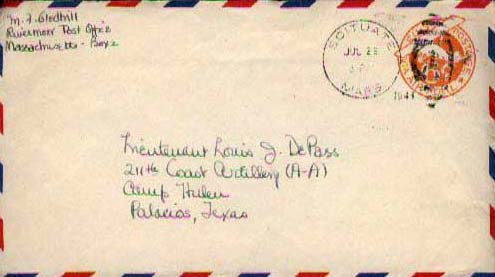 M. F. Gledhill
Rivermoor Post Office
Massachusetts - Box 2
SCITUATE
JUL 28
MASS
1941
Lieutenant Louis J. DePass
211th Coast Artillery (A-A)
Camp Hulen
Palacios, Texas